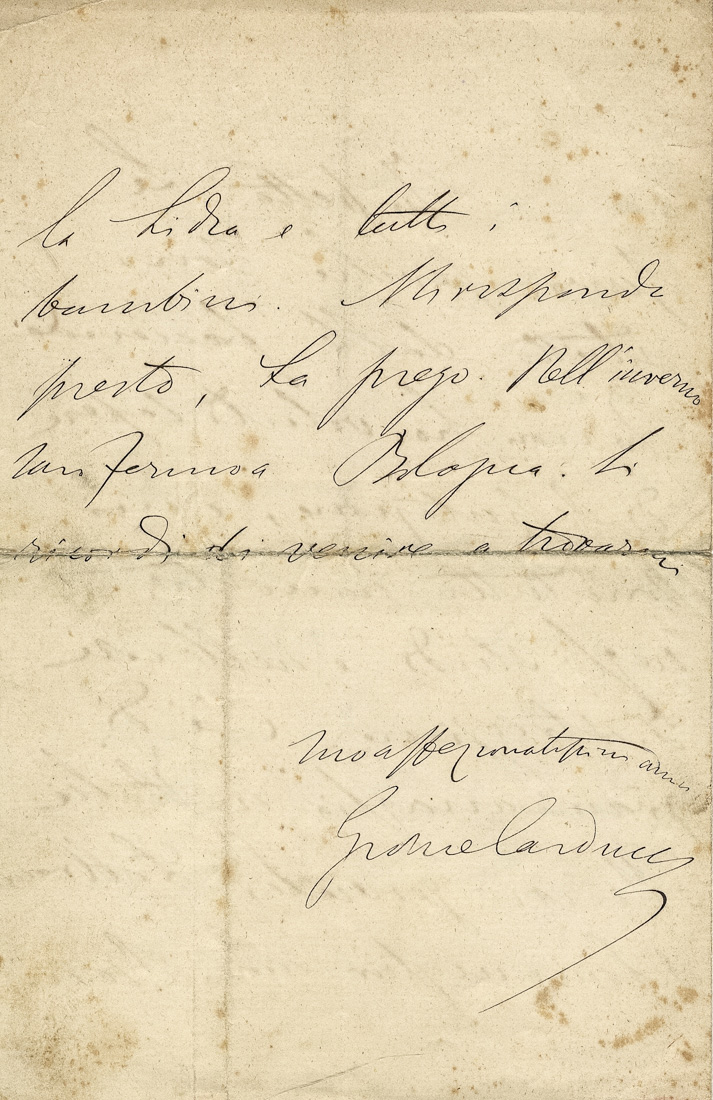 la Lidia e tutti i
bambini. Mi risponda
presto, La prego. Nell'inverno
son fermo a Bologna. Si
ricordi di venire a trovarmi
suo affezionatissimo amico
Giosue Carducci